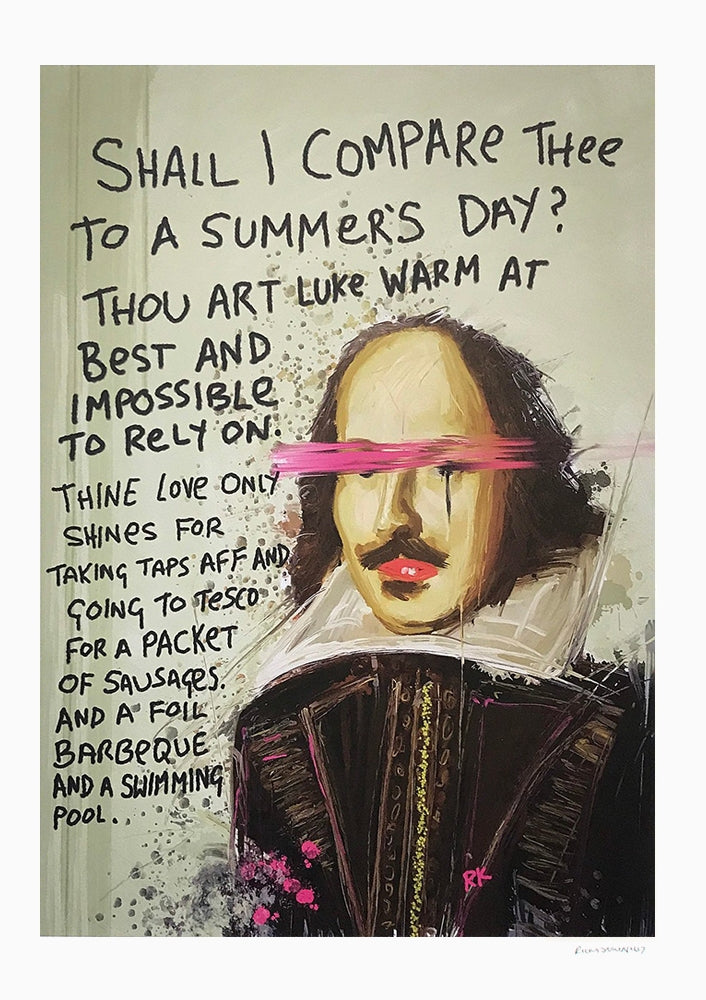 SHALL I COMPARE THee
TO A SUMMeR'S DAY?
THOU ART LUKe WARM AT
BesT AND
IMPOSSIBLe
TO ReLY ON.
THINE LOVe ONLY
SHINes FOR
TAKING TAPS AFF AND
GOING TO Tesco
FOR A PACKeT
OF SAUSAGes.
AND A FOIL
BARBeQUE
AND A SWIMMING
POOL.
RK